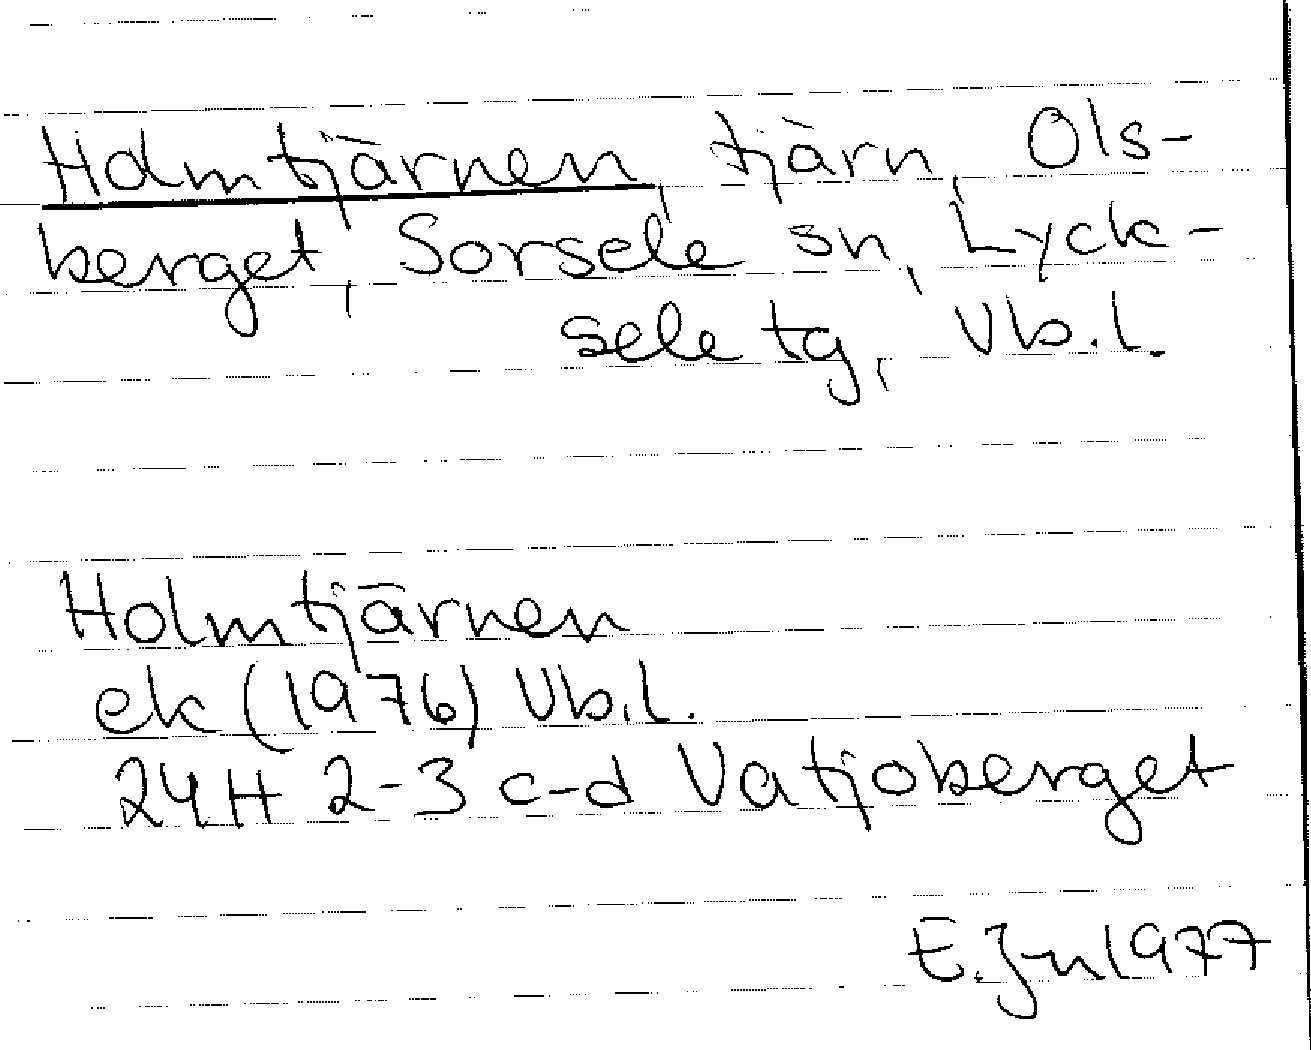 Holmtjärnen, tjärn, Ols-
berget, Sorsele sn, Lyck-
sele tg, Vb.l.
Holmtjärnen
ek (1976) Vb.l.
24H 2-3 c-d Vatjoberget
E.Jn 1977